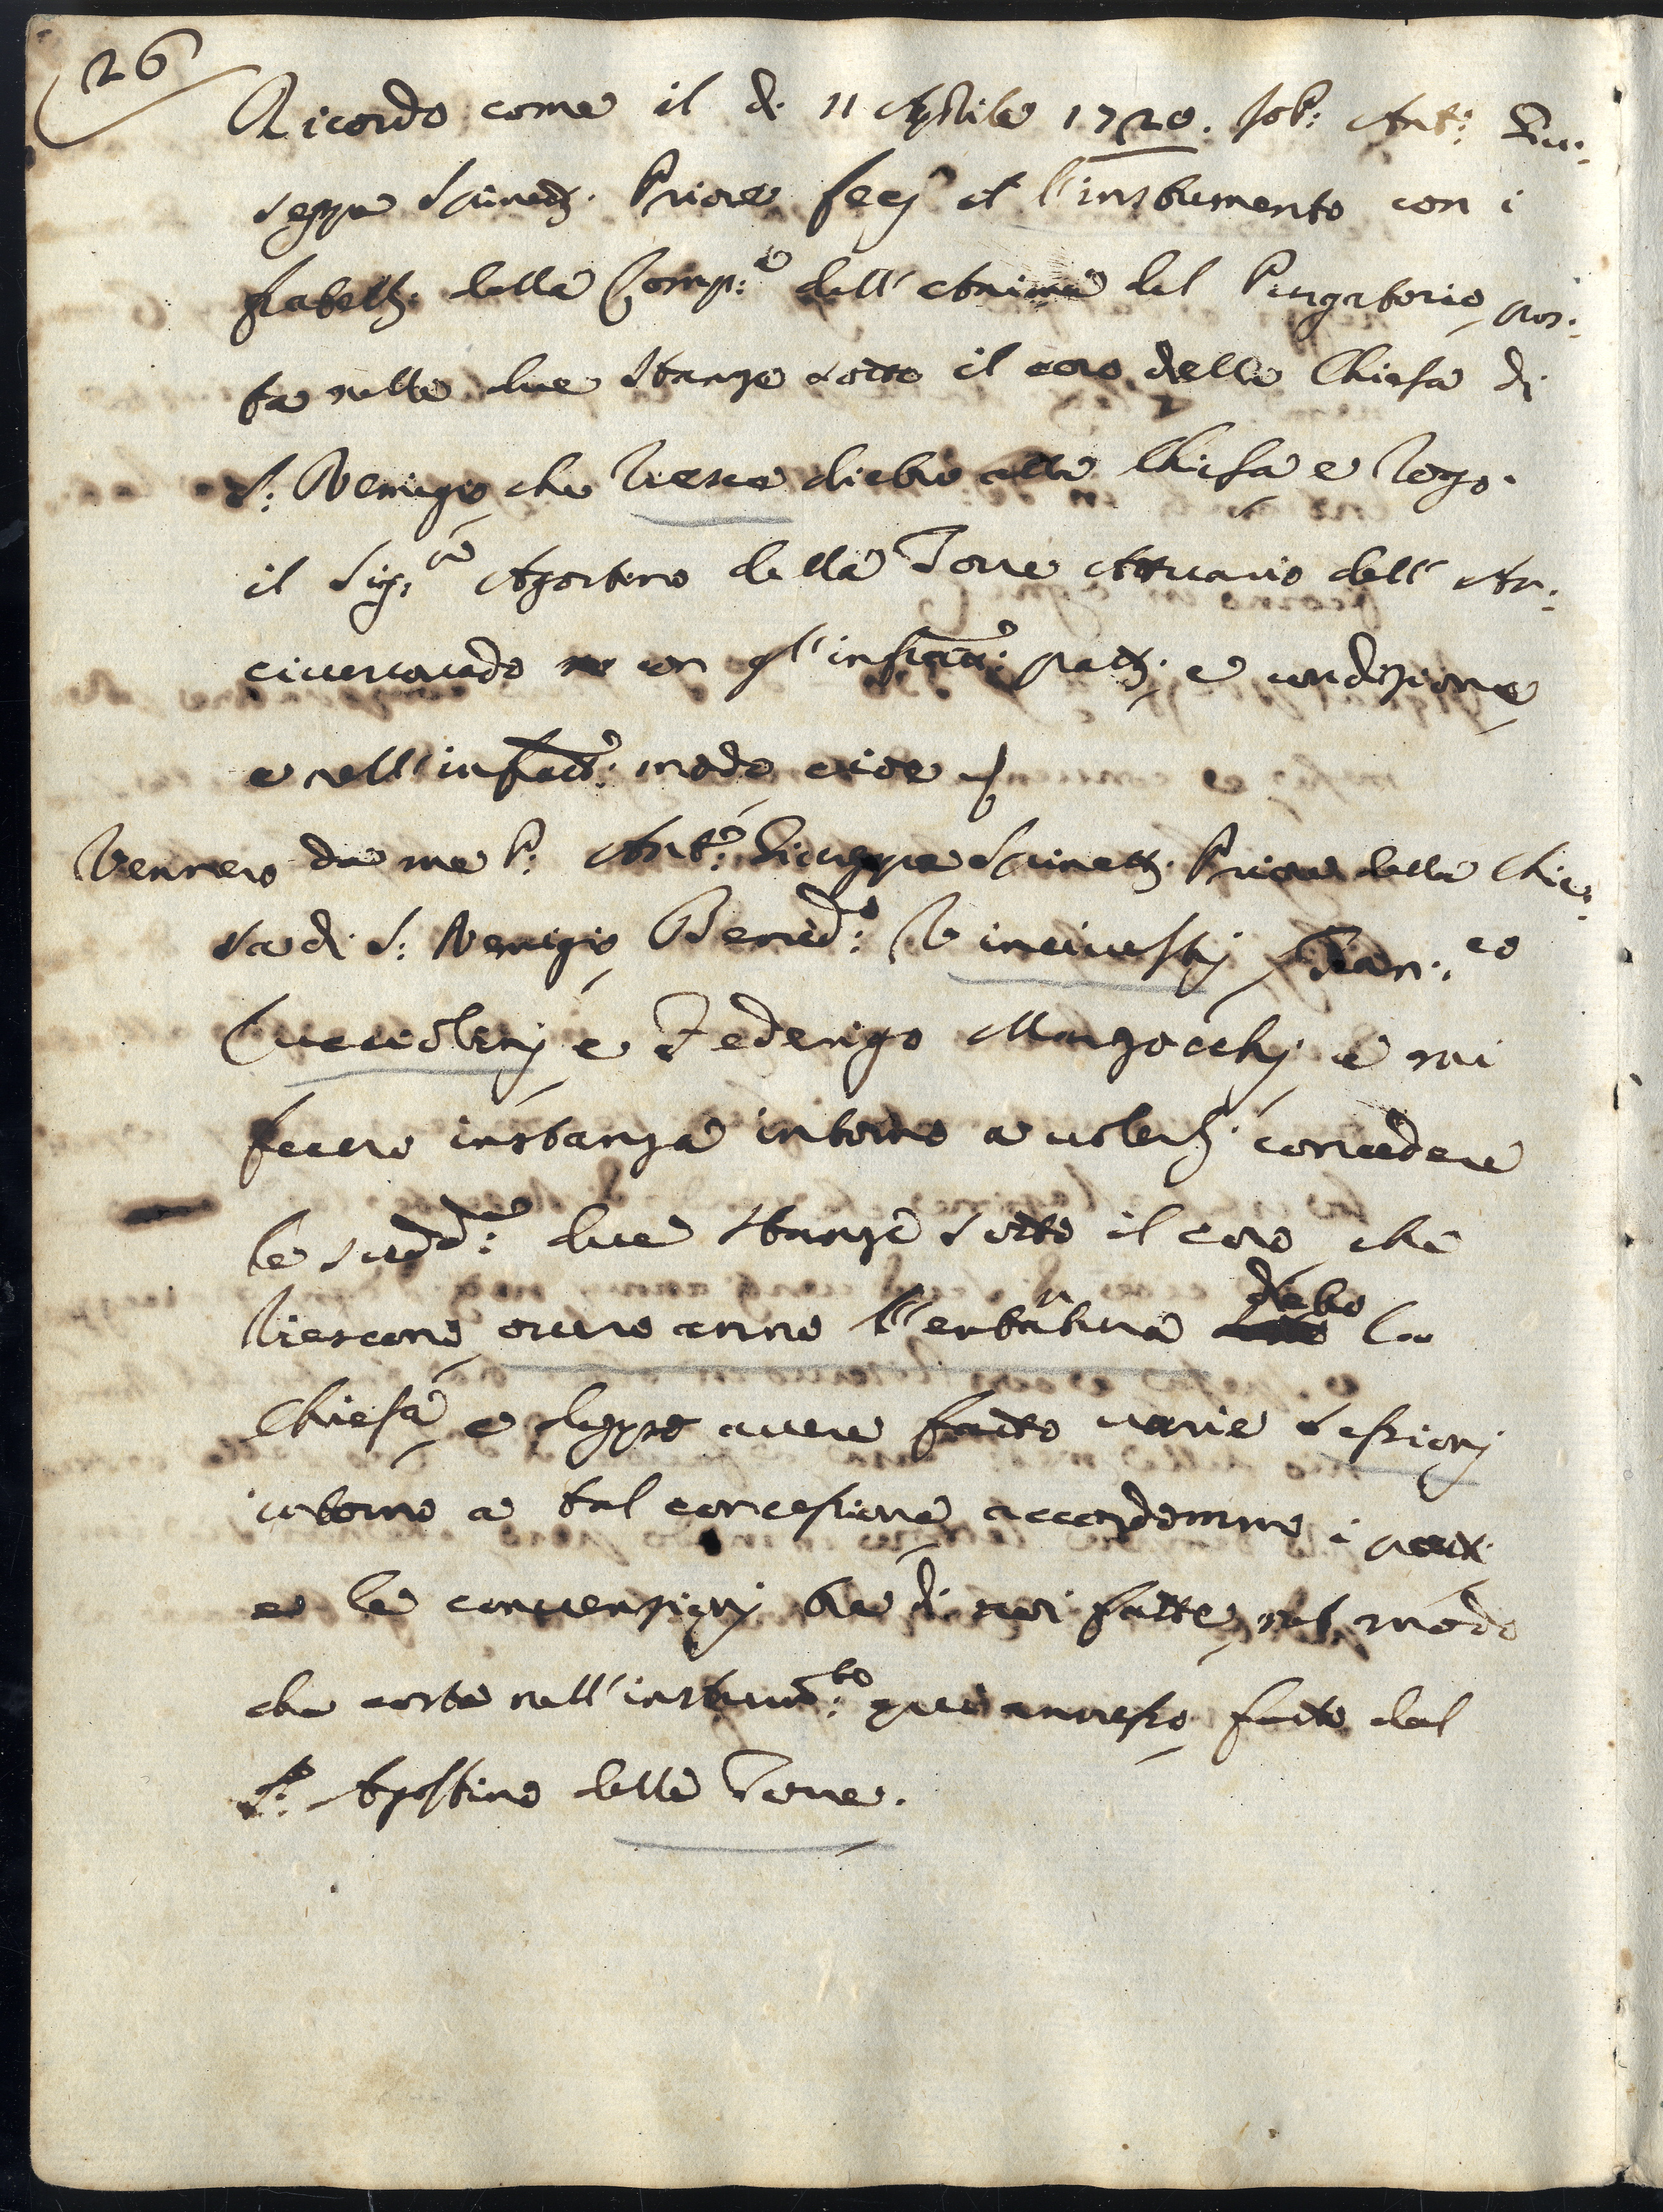 26
Ricordo come il dì 11 Aprile 1720. Io P: Ant:o Giu:
seppe Spinetj. Priore fecj il l'instrumento con i
fratellj. della Comp:a dell'Anime del Purgatorio, pos:
ta nelle due stanze sotto il coro della Chiesa di
S: Remigio, che riesce dietro alla Chiesa e rogo.
il Sig:re Agostino della Torre Attuario dell'Ar:
civescovado con gl'infra:tti pattj, e condizione,
e nell'infratto: modo cioè
Vennero da me P: Ant:o Giuseppe Spinettj. Priore della Chie:
sa di S: Remigio, Bened:o Vincivestij, Fran:co
Cucciolinj, e Federigo Mazzocchj, e mi
fecero instanza intorno a volerlj. concedere
le sudd:e due stanze sotto il coro, che
riescono, overo anno l'entratura dietro la
Chiesa, e doppo avere fatto varie sessionj
intorno a tal concessione, accordammo i pattj.
e le convenzionj tra di noi fatte, nel modo
che costa nell'instrum:to qui annesso, fatto dal
S:r Agostino della Torre.